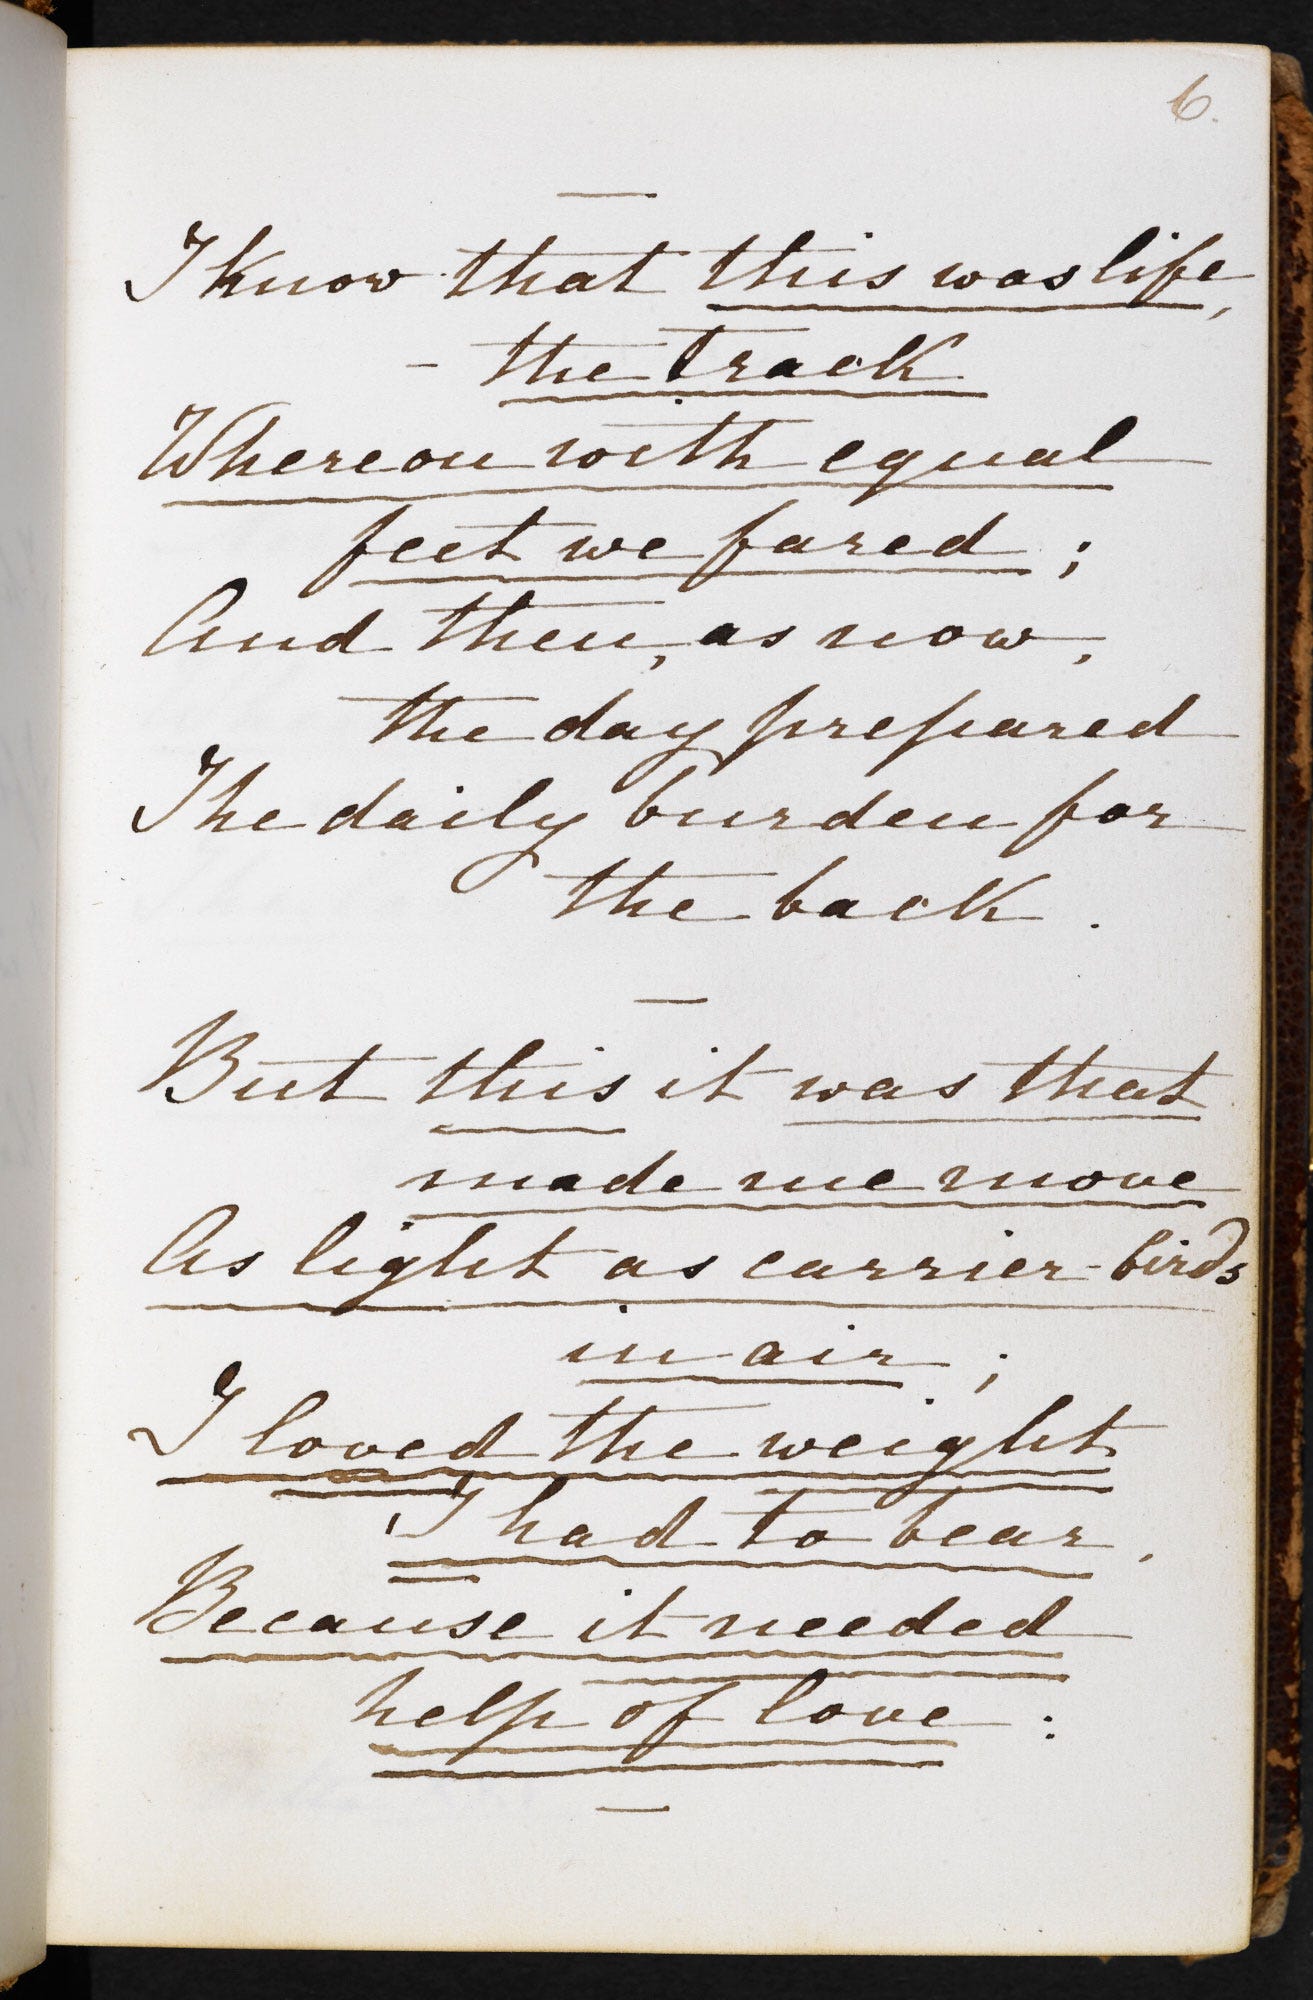 6.
I know that this was life,
- the track
Whereon with equal
feet we fared ;
And then, as now,
the day prepared
The daily burden for
the back .
But this it was that
made me move
As light as carrier-birds
in air ;
I loved the weight
I had to bear,
Because it needed
help of love :